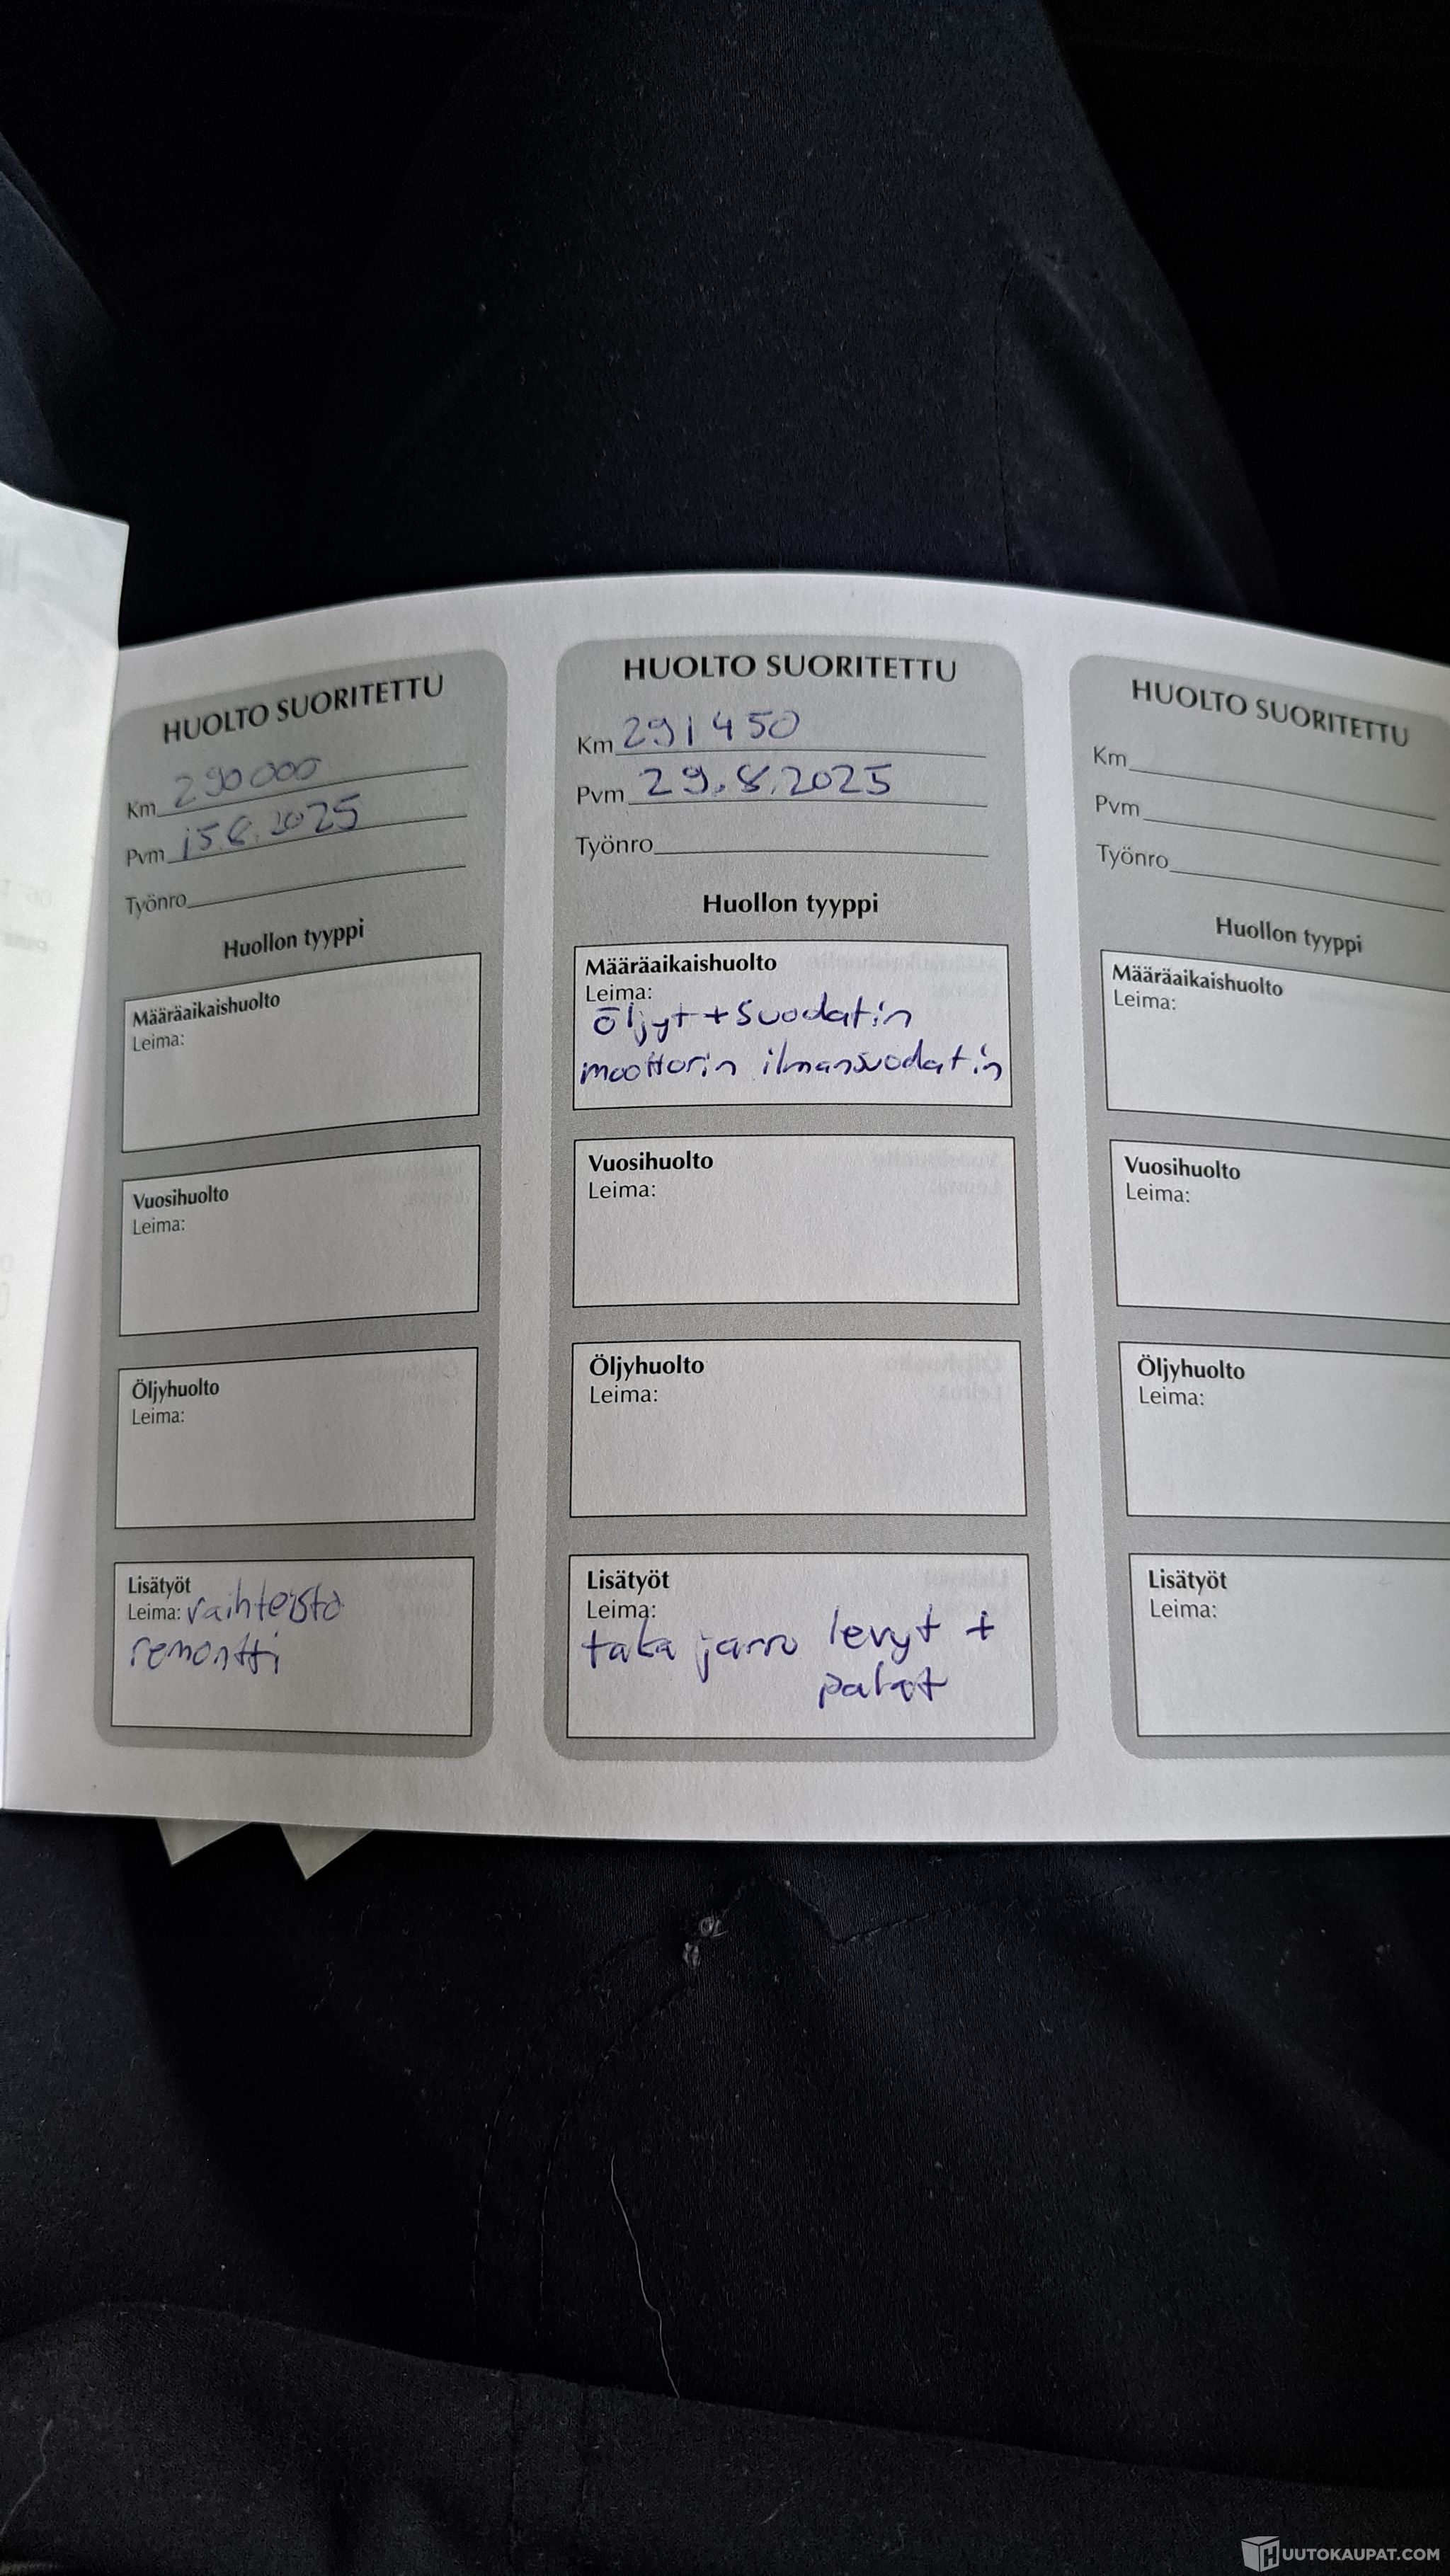 HUOLTO SUORITETTU
Km 290000
Pvm 15.8.2025
Työnro
Huollon tyyppi
Määräaikaishuolto
Leima:
Vuosihuolto
Leima:
Öljyhuolto
Leima:
Lisätyöt
Leima: vaihteisto
remontti
HUOLTO SUORITETTU
Km 291450
Pvm 29.8.2025
Työnro
Huollon tyyppi
Määräaikaishuolto
Leima:
öljyt + suodatin
moottorin ilmansuodatin
Vuosihuolto
Leima:
Öljyhuolto
Leima:
Lisätyöt
Leima:
taka jarru levyt +
palat
HUOLTO SUORITETTU
Km
Pvm
Työnro
Huollon tyyppi
Määräaikaishuolto
Leima:
Vuosihuolto
Leima:
Öljyhuolto
Leima:
Lisätyöt
Leima:
HUUTOKAUPAT.COM